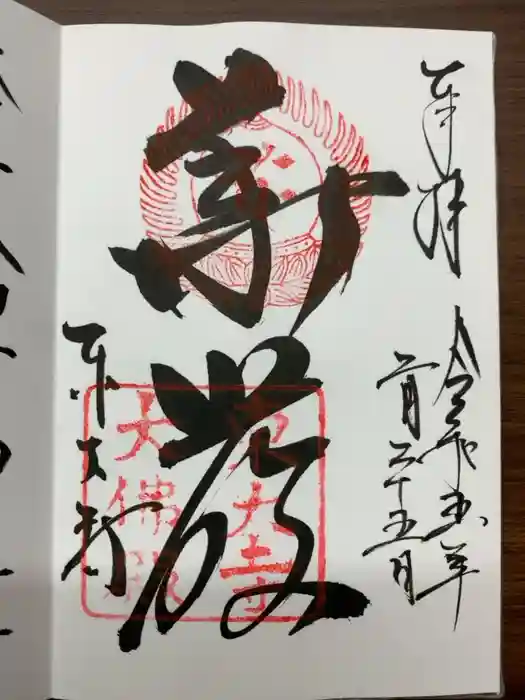 奉拝
令和五年
二月二十五日
華厳
東大寺
大佛殿
東大寺